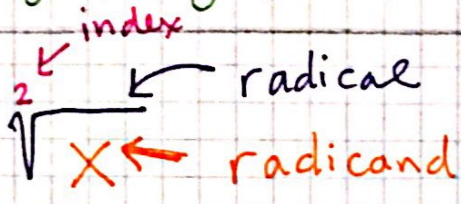 index
2
radical
X
radicand